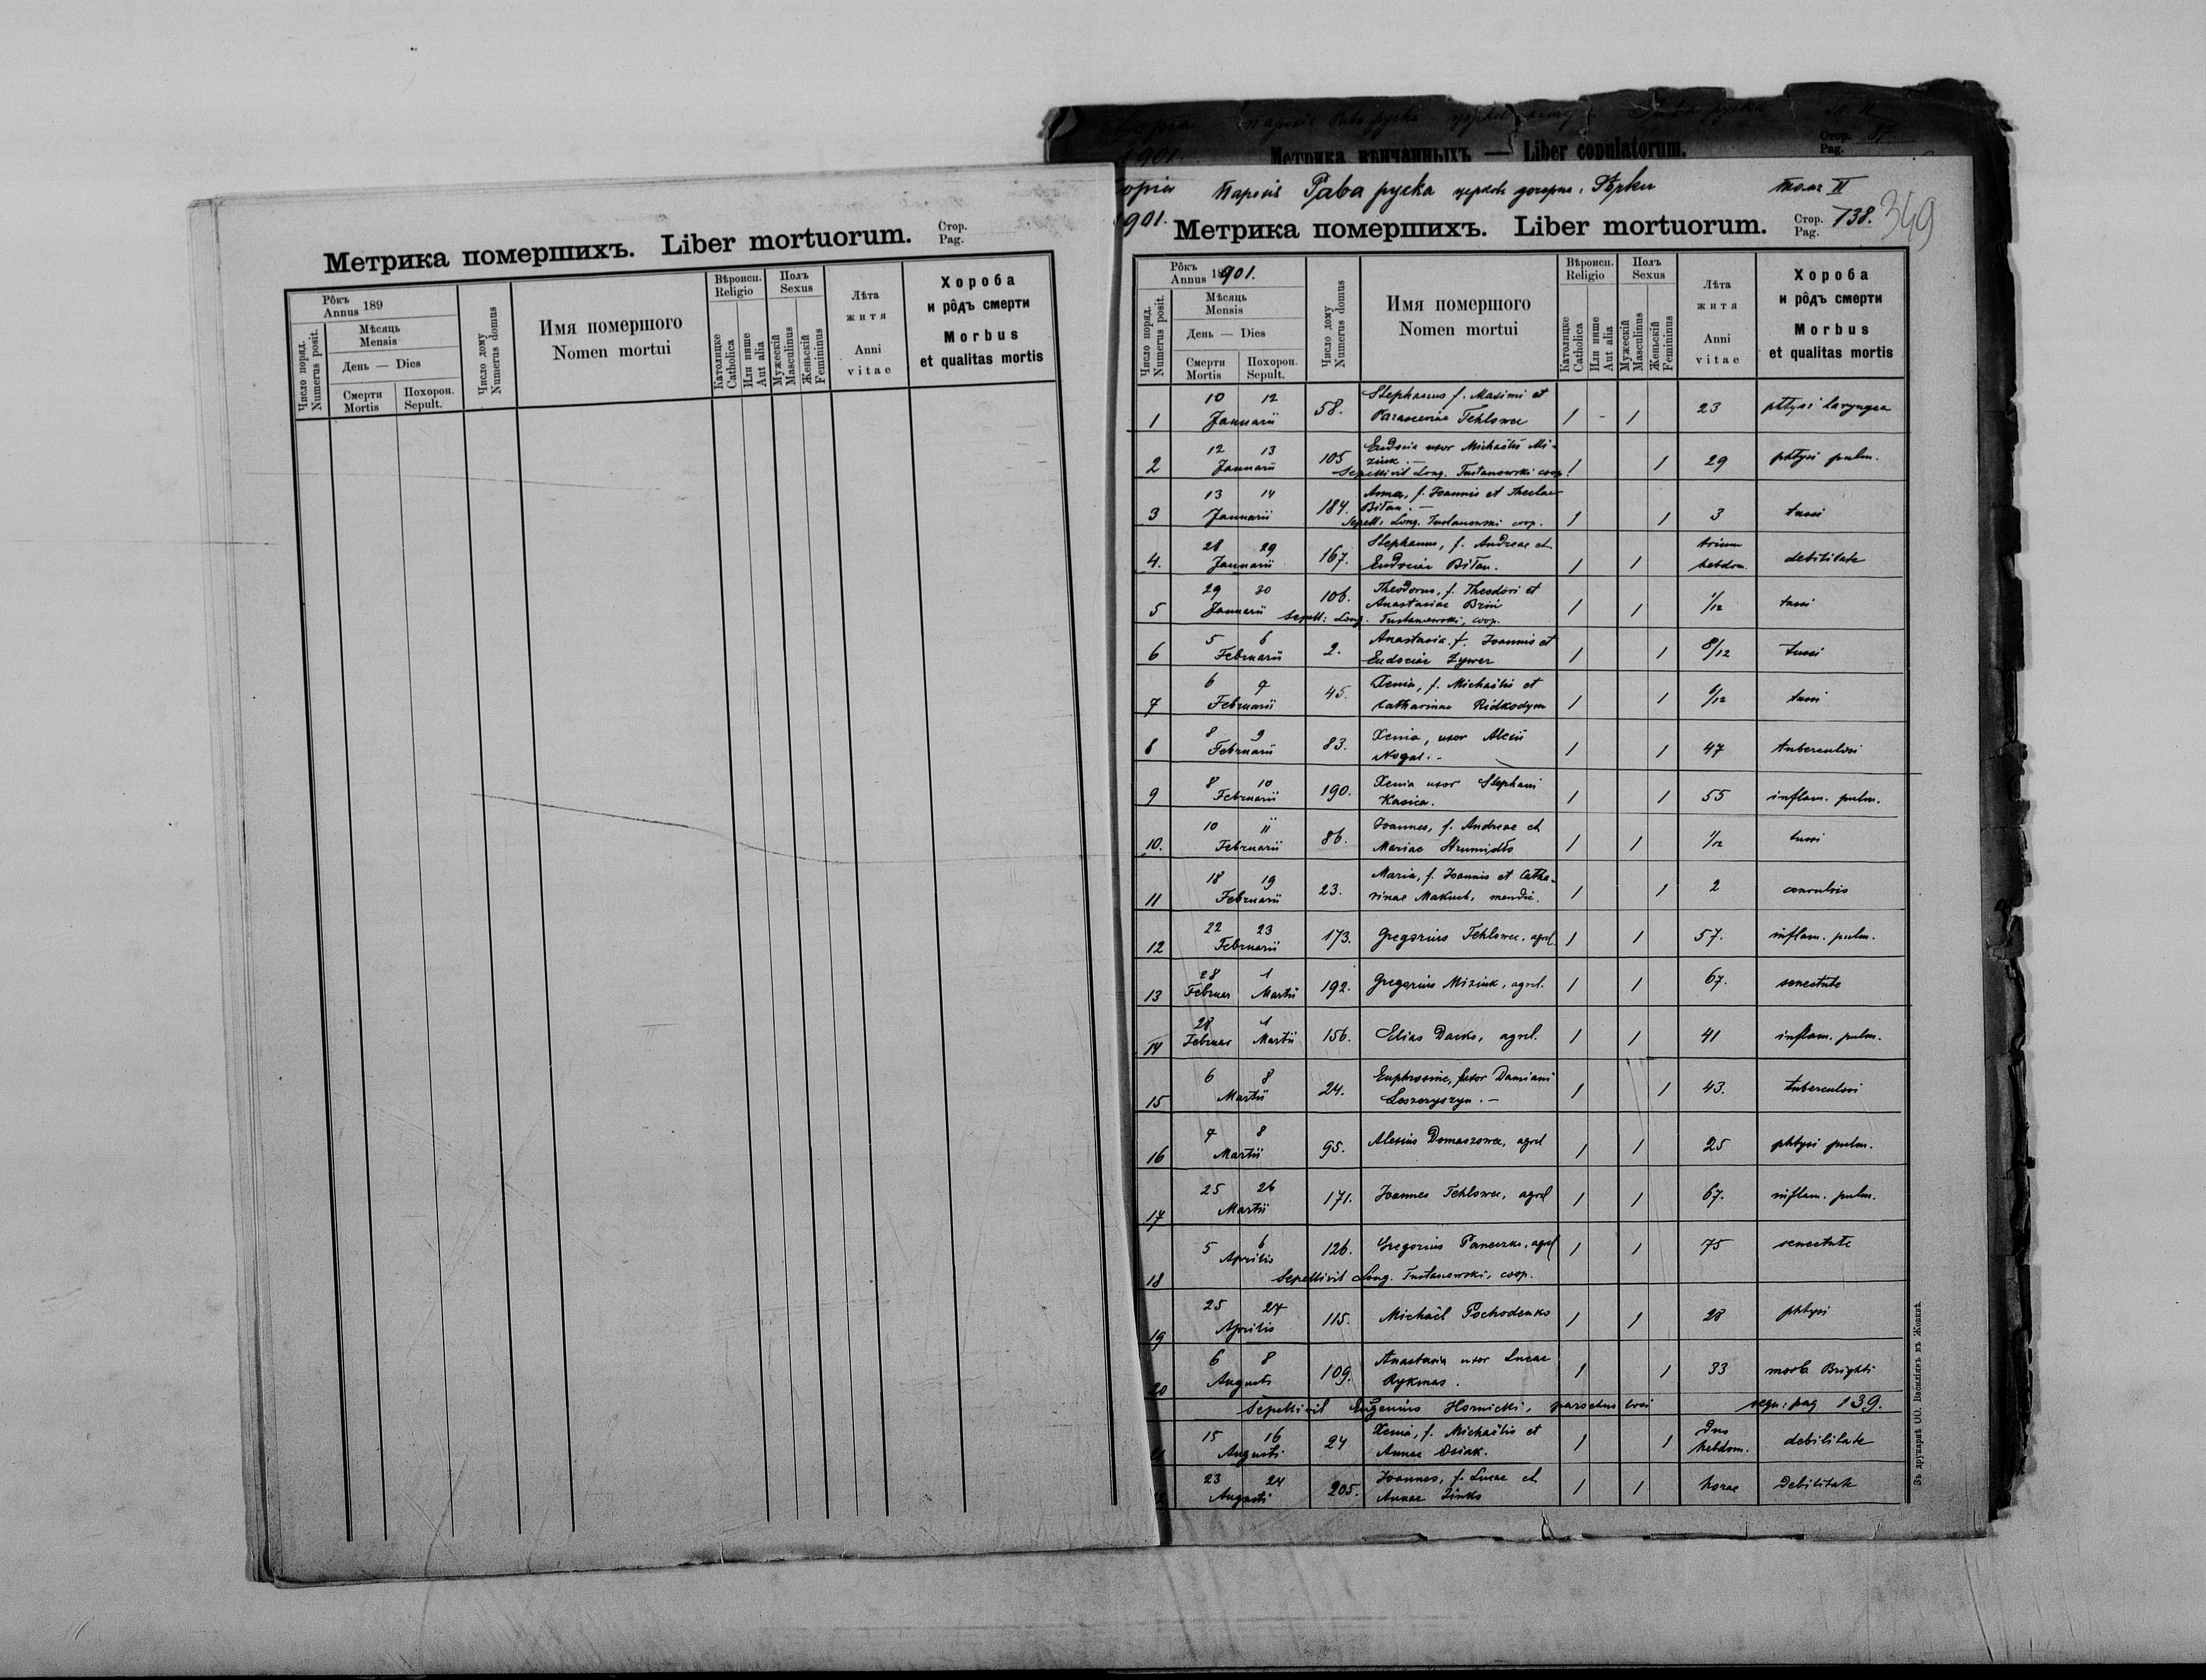 Метрика помершихъ. Liber mortuorum.
Стор.
Pag.
Рôкъ
Annus 189
Мѣсяць
Mensis
День — Dies
Смерти
Mortis
Похорон.
Sepult.
Число поряд.
Numerus posit.
Число дому
Numerus domus
Имя помершого
Nomen mortui
Вѣроисп.
Religio
Католицке
Catholica
Или инше
Aut alia
Полъ
Sexus
Мужескій
Masculinus
Женьскій
Femininus
Лѣта
житя
Anni
vitae
Хороба
и рôдъ смерти
Morbus
et qualitas mortis
Метрика вѣнчанныхъ — Liber copulatorum.
Стор.
Pag.
Рава руска
Томъ II
1901.
Метрика помершихъ. Liber mortuorum.
Стор.
Pag. 138.
349
Рôкъ
Annus 1901.
Мѣсяць
Mensis
День — Dies
Смерти
Mortis
Похорон.
Sepult.
Число поряд.
Numerus posit.
Число дому
Numerus domus
Имя помершого
Nomen mortui
Вѣроисп.
Religio
Католицке
Catholica
Или инше
Aut alia
Полъ
Sexus
Мужескій
Masculinus
Женьскій
Femininus
Лѣта
житя
Anni
vitae
Хороба
и рôдъ смерти
Morbus
et qualitas mortis
1 10 12 Januarii 58. Stephanus f. Maximi et
Parasceviae Tehlowec 1 - 1 23 phtysi laryngea
2 12 13 Januarii 105 Eudocia uxor Michaëlis Mi-
zink. — 1 1 29 phtysi pulm.
Sepelivit Long. Tustanowski coop.
3 13 14 Januarii 184. Anna, f. Joannis et Theclae
Biłan. — 1 1 3 tussi
Sepell: Long. Tustanowski coop.
4. 28 29 Januarii 167. Stephanus, f. Andreae et
Eudociae Biłan. 1 1 trium hebdom. debilitate
5 29 30 Januarii 106. Theodorus, f. Theodori et
Anastasiae 1 1 1/12 tussi
Sepell: Long. Tustanowski, coop.
6 5 6 Februarii 2. Anastasia f. Joannis et
Eudociae Zywer 1 1 8/12 tussi
7 6 7 Februarii 45. Xenia, f. Michaëlis et
Catharinae Ridkodym 1 1 tussi
8 8 9 Februarii 83. Xenia, uxor Alexii
Nogal. - 1 1 47 tuberculosi
9 8 10 Februarii 190. Xenia uxor Stephani
Kasica. 1 1 55 inflam. pulm.
10. 10 11 Februarii 86. Joannes, f. Andreae et
Mariae 1 1 1/12 tussi
11 18 19 Februarii 23. Maria, f. Joannis et Catha-
rinae Makuch, mendic. 1 1 2 convulsio
12 22 23 Februarii 173. Gregorius Tehlowec, agrcl. 1 1 57. inflam. pulm.
13 28 Februar 1 Martii 192. Gregorius Mizink, agrcl. 1 1 67. senectute
14 28 Februar 1 Martii 156. Elias Dacko, agrcl. 1 1 41 inflam. pulm.
15 6 8 Martii 24. Euphrosine, uxor Damiani
Leszczyszyn. - 1 1 43. tuberculosi
16 7 8 Martii 95. Alexius Domaszowec, agrcl 1 1 25 phtysi pulm.
17 25 26 Martii 171. Joannes Tehlowec, agrcl 1 1 67. inflam. pulm.
18 5 6 Aprilis 126. Gregorius Paneczko, agrcl 1 1 75 senectute
Sepellivit Long. Tustanowski, coop.
19 25 27 Aprilis 115. Michaël Pochodenko 1 1 28 phtysi
20 6 8 Augusti 109. Anastasia uxor Lucae
Rykmas. 1 1 33 morb. Brighti
Sepellivit Eugenius Hornicki, parochus loci sequ: pag 139.
15 16 Augusti 24 Xenia, f. Michaëlis et
Annae Osiak. 1 1 Duo hebdom. debilitate
23 24 Augusti 205. Joannes, f. Lucae et
Annae Zinko 1 1 horae Debilitate
Зъ друкарнѣ ОО. Василіянъ въ Жовквѣ.